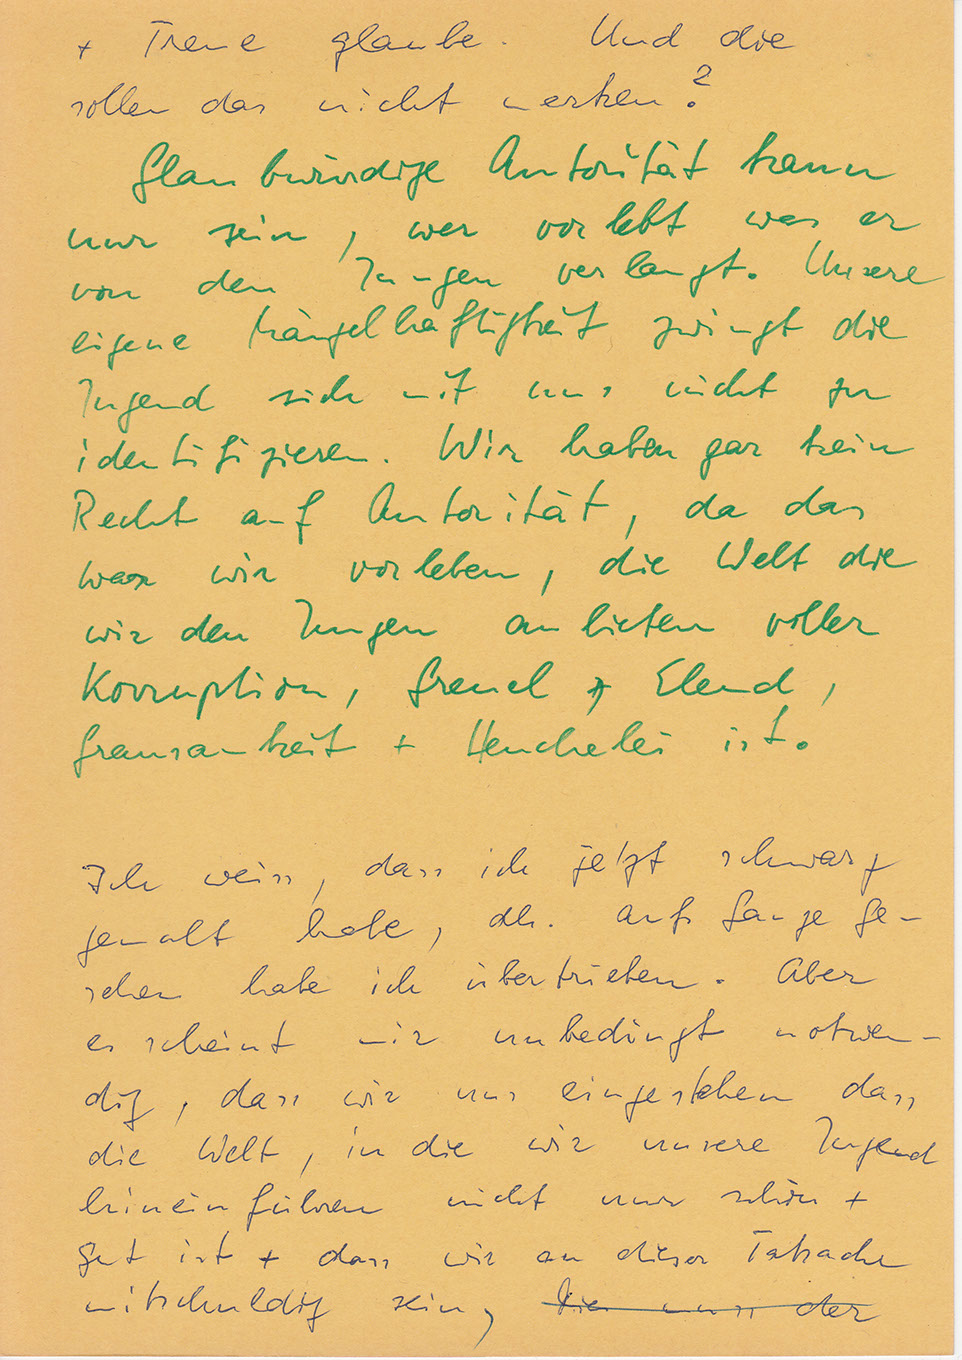 + Treue glaube. Und die
sollen das nicht merken?
Glaubwürdige Autorität kann
nur sein, wer vorlebt was er
von den Jungen verlangt. Unsere
eigene Mängelhaftigkeit zwingt die
Jugend sich mit uns nicht zu
identifizieren. Wir haben gar kein
Recht auf Autorität, da das
was wir vorleben, die Welt die
wir den Jungen anbieten voller
Korruption, Greuel + Elend,
Grausamkeit + Heuchelei ist.
Ich weiss, dass ich jetzt schwarz
gemalt habe, dh. aufs Ganze ge-
sehen habe ich übertrieben. Aber
es scheint mir unbedingt notwen-
dig, dass wir uns eingestehen dass
die Welt, in die wir unsere Jugend
hineinführen nicht nur schön +
gut ist + dass wir an dieser Tatsache
mitschuldig sein, Die muss der